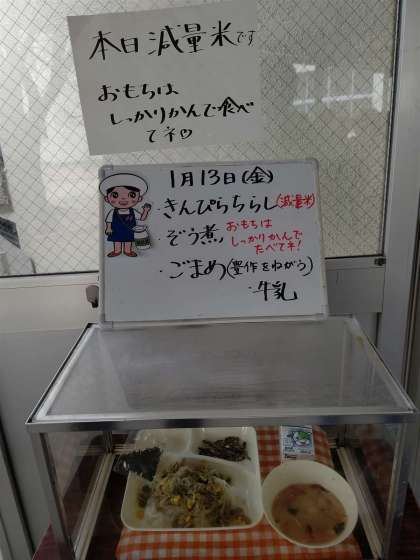 本日減量米です
おもちは
しっかりかんで食べ
てネ♡
1月13日(金)
・きんぴらちらし(減量米)
・ぞう煮
おもちは
しっかりかんで
たべてネ!
・ごまめ(豊作をねがう)
・牛乳